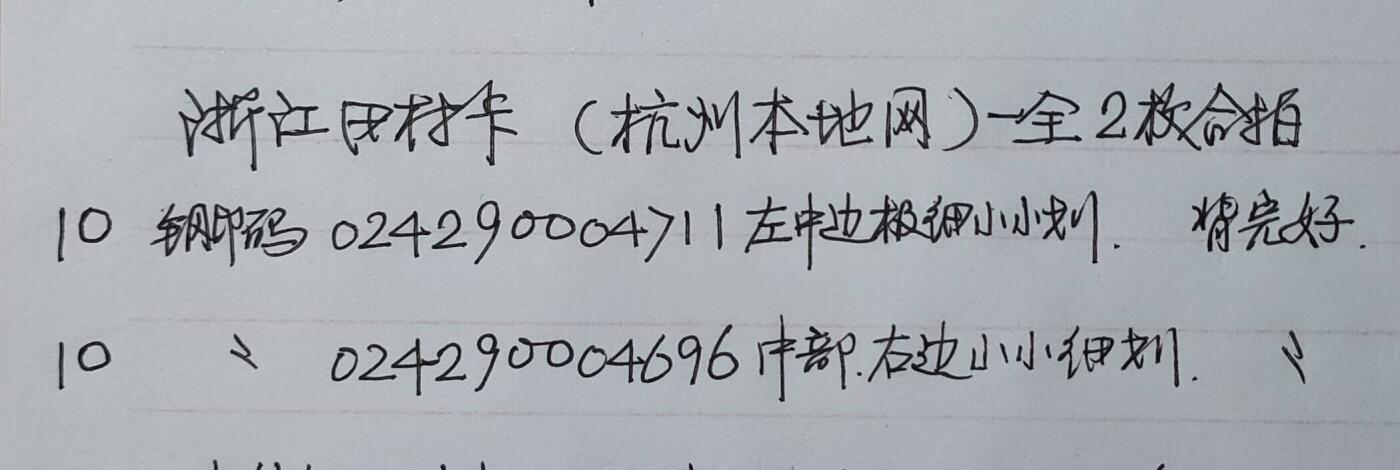 浙江田村卡（杭州本地网）一全2枚合拍
10 钢印码 024290004711左中边极细小小划. 背完好.
10 〃 024290004696中部.右边小小细划. 〃